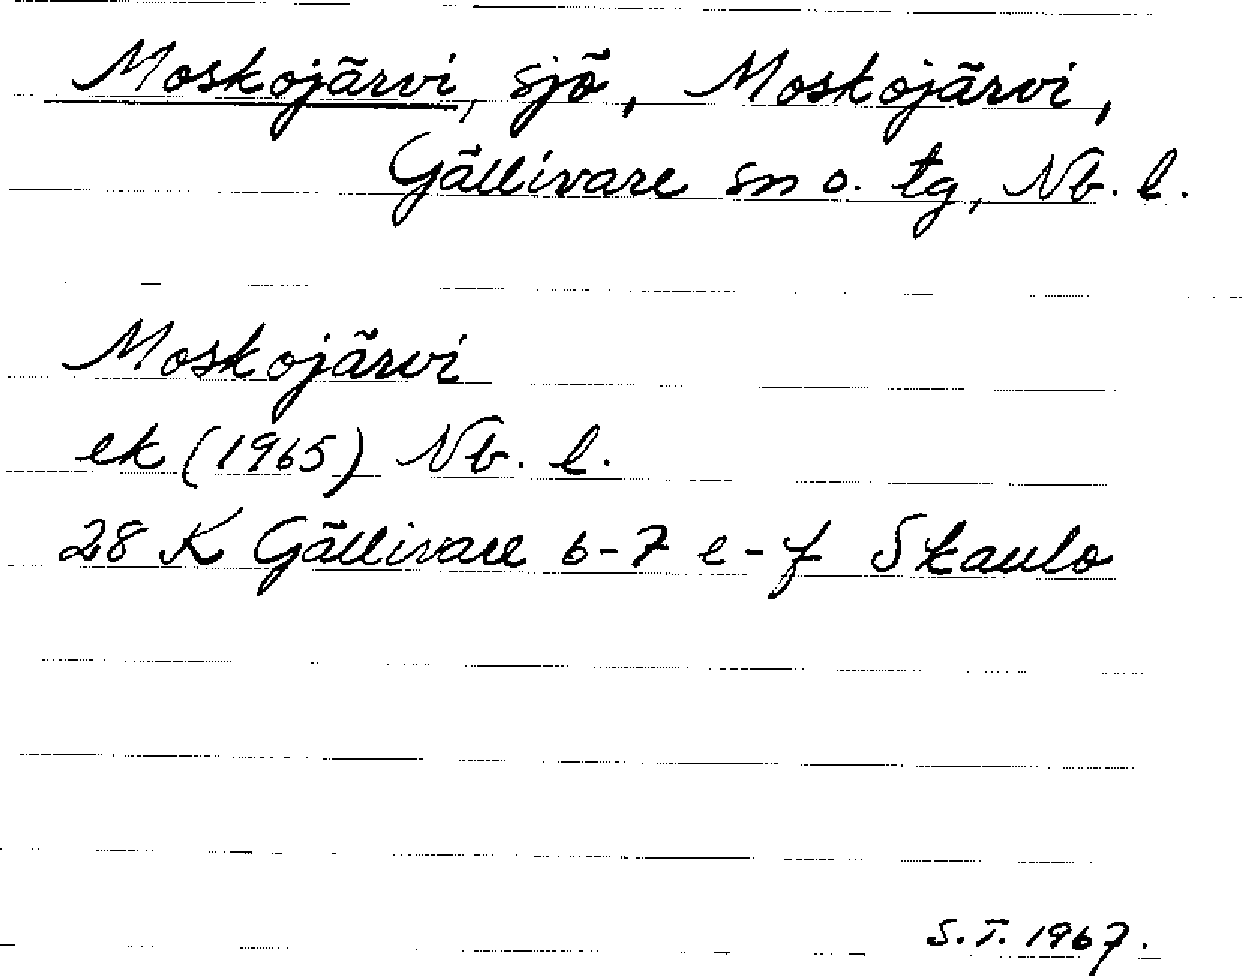 Moskojärvi, sjö, Moskojärvi,
Gällivare sn o. tg, Nb. l.
Moskojärvi
ek (1965) Nb. l.
28 K Gällivare 6-7 e-f Skaulo
S.T. 1967.